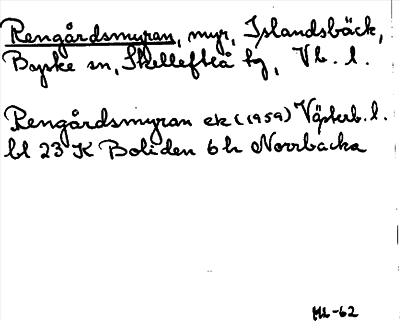 Rengårdsmyran, myr, Islandsbäck,
Byske sn, Skellefteå kg, Vb. l.
Rengårdsmyran ek (1959) Västerb. l.
bl 23 K Boliden 6 h Norrbacka
ML-62